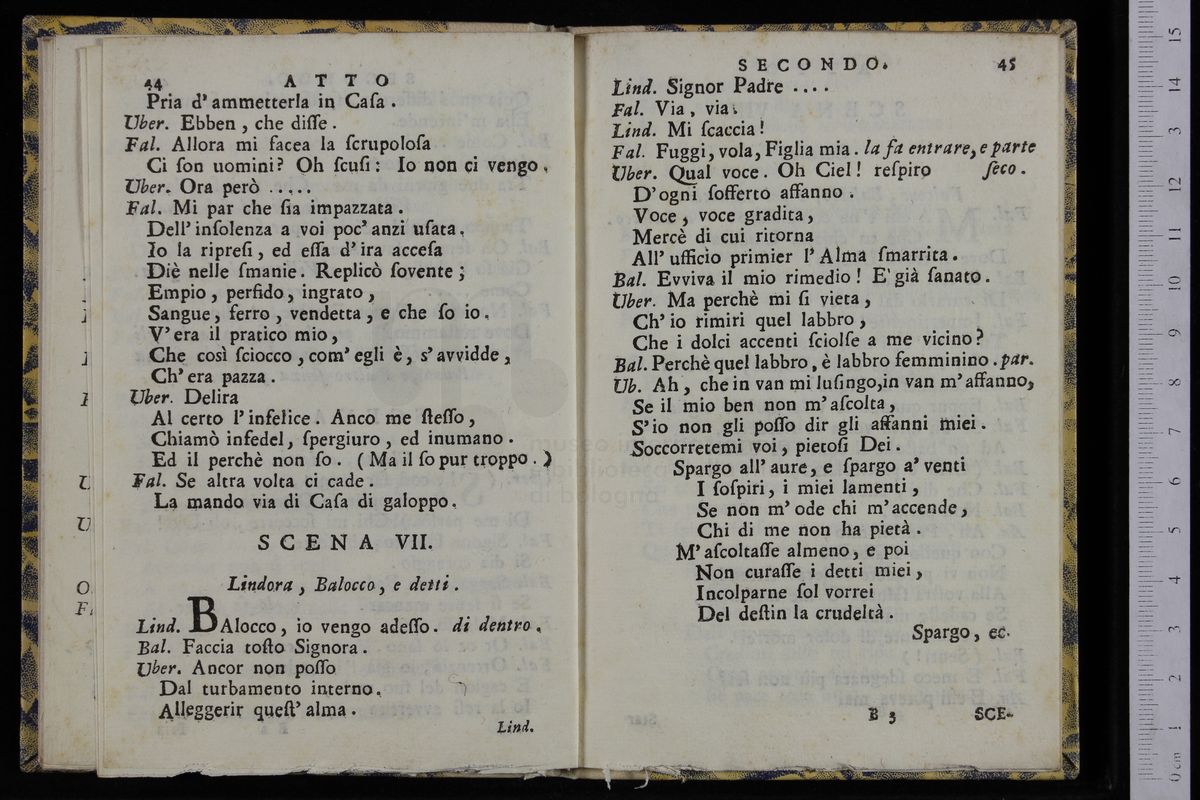 44 ATTO
Pria d'ammetterla in Caſa.
Uber. Ebben, che diſſe.
Fal. Allora mi facea la ſcrupoloſa
Ci ſon uomini? Oh ſcuſi: Io non ci vengo.
Uber. Ora però .....
Fal. Mi par che ſia impazzata.
Dell'inſolenza a voi poc'anzi uſata.
Io la ripreſi, ed eſſa d'ira acceſa
Diè nelle ſmanie. Replicò ſovente;
Empio, perfido, ingrato,
Sangue, ferro, vendetta, e che ſo io.
V'era il pratico mio,
Che così ſciocco, com'egli è, s'avvidde,
Ch'era pazza.
Uber. Delira
Al certo l'infelice. Anco me ſteſſo,
Chiamò infedel, ſpergiuro, ed inumano.
Ed il perchè non ſo. (Ma il ſo pur troppo.)
Fal. Se altra volta ci cade.
La mando via di Caſa di galoppo.
SCENA VII.
Lindora, Balocco, e detti.
Lind. BAlocco, io vengo adeſſo. di dentro.
Bal. Faccia toſto Signora.
Uber. Ancor non poſſo
Dal turbamento interno.
Alleggerir queſt'alma.
Lind.
SECONDO. 45
Lind. Signor Padre ....
Fal. Via, via.
Lind. Mi ſcaccia!
Fal. Fuggi, vola, Figlia mia. la fa entrare, e parte
Uber. Qual voce. Oh Ciel! reſpiro ſeco.
D'ogni ſofferto affanno.
Voce, voce gradita,
Mercè di cui ritorna
All'ufficio primier l'Alma ſmarrita.
Bal. Evviva il mio rimedio! E'già ſanato.
Uber. Ma perchè mi ſi vieta,
Ch'io rimiri quel labbro,
Che i dolci accenti ſciolſe a me vicino?
Bal. Perchè quel labbro, è labbro femminino. par.
Ub. Ah, che in van mi luſingo, in van m'affanno,
Se il mio ben non m'aſcolta,
S'io non gli poſſo dir gli affanni miei.
Soccorretemi voi, pietoſi Dei.
Spargo all'aure, e ſpargo a'venti
I ſoſpiri, i miei lamenti,
Se non m'ode chi m'accende,
Chi di me non ha pietà.
M'aſcoltaſſe almeno, e poi
Non curaſſe i detti miei,
Incolparne ſol vorrei
Del deſtin la crudeltà.
Spargo, ec.
B 3 SCE-